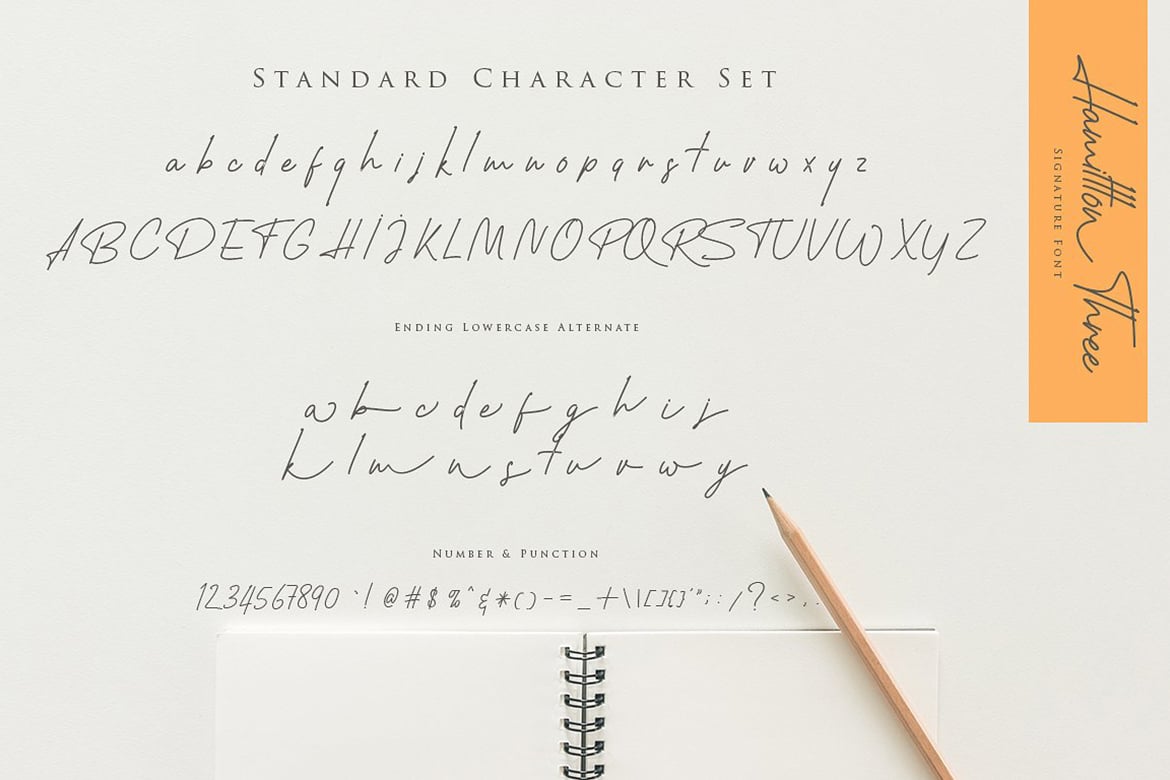 Standard Character Set
a b c d e f g h i j k l m n o p q r s t u v w x y z
A B C D E F G H I J K L M N O P Q R S T U V W X Y Z
Ending Lowercase Alternate
a b c d e f g h i j
k l m n s t u v w y
Number & Punction
1 2 3 4 5 6 7 8 9 0 ` ! @ # $ % ^ & * ( ) - = _ + \ | [ ] { } ' " ; : / ? < > , .
Hamillton Three
Signature Font